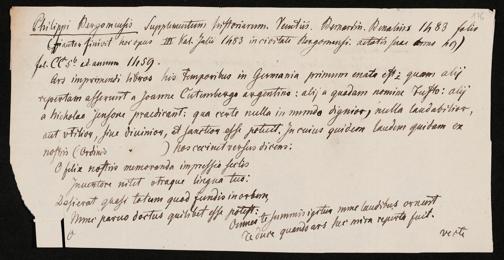 Philippi Bergomensis Supplementum historiarum. Venetiis. Bernardin. Benalius 1483 folio
(frater finivit hoc opus III Kal. Julii 1483 in civitati Bergomensi. aetatis suae anno 49)
fol. ad annum 1459.
Ars imprimendi libros his temporibus in Germania primum enata est: quam alij
repertam asserunt a Joanne Cutembergo argentino: alij a quodam nomine Fusto: alij
a Nicholao Jensone praedicant: qua certe nulla in mundo dignior, nulla laudabilior,
aut utilior, sive divinior, et sanctior esse potuit. In cuius quidem laudem quidam ex
nostris (Ordinis ) hos cecinit versus dicens:
O felix nostris memoranda impressio seclis
Inventore nitet utraque lingua tuo:
Desierat quasi totum quod fundis in orbem,
Nunc parvo doctus quilibet esse potest:
Omnes te summis igitur nunc laudibus ornent
Te duce quando ars haec mira reperta fuit.
verte